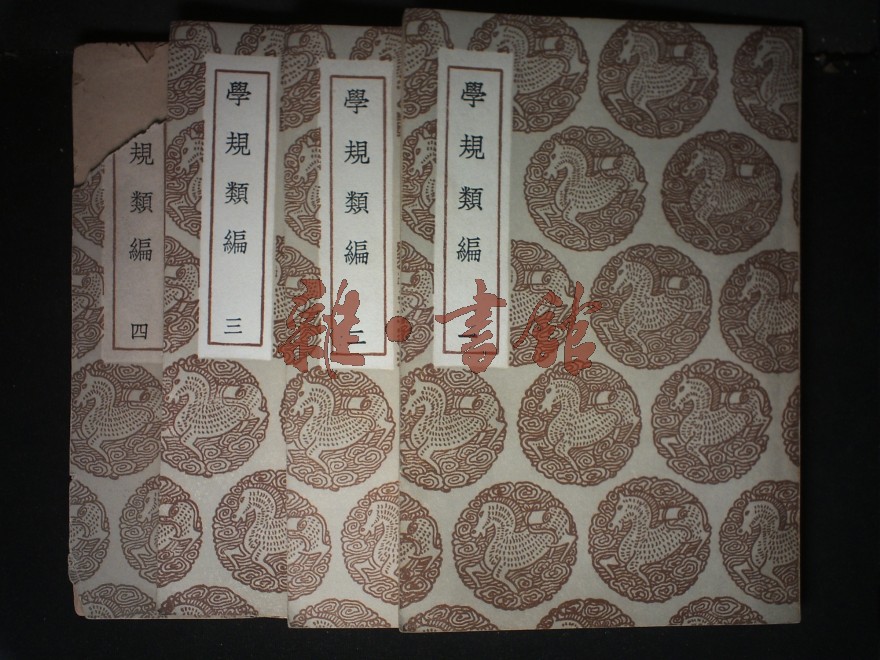 學規類編
一
學規類編
二
學規類編
三
規類編
四
雜·書館